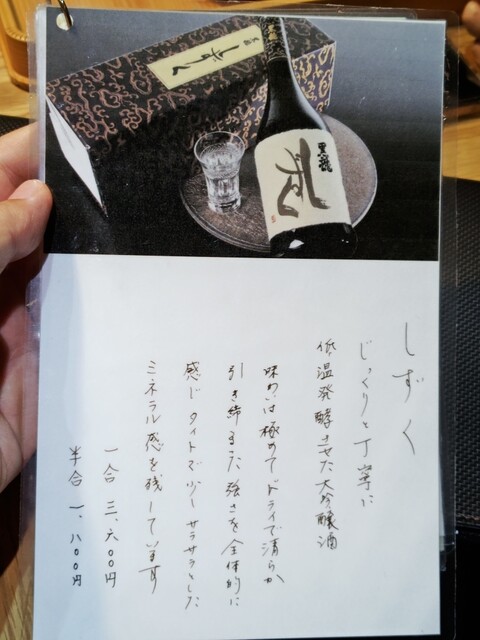 黒龍
しずく
しずく
じっくりと丁寧に
低温発酵させた大吟醸酒
味わいは極めてドライで清らか
引き締まった強さを全体的に
感じタイトで少しサラサラとした
ミネラル感を残して
一合 三、六〇〇円
半合 一、八〇〇円